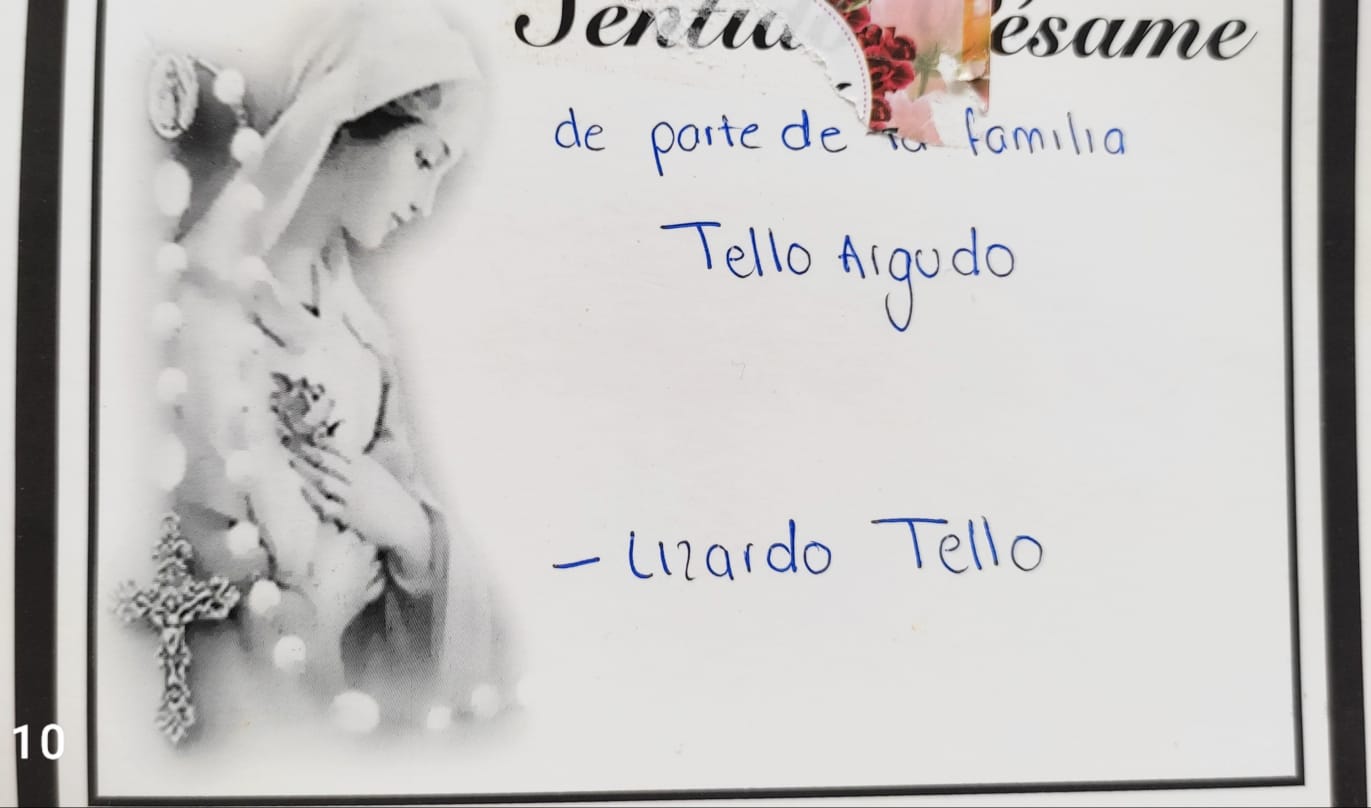 Sentid Pésame
de parte de la familia
Tello Argudo
- Lizardo Tello
10